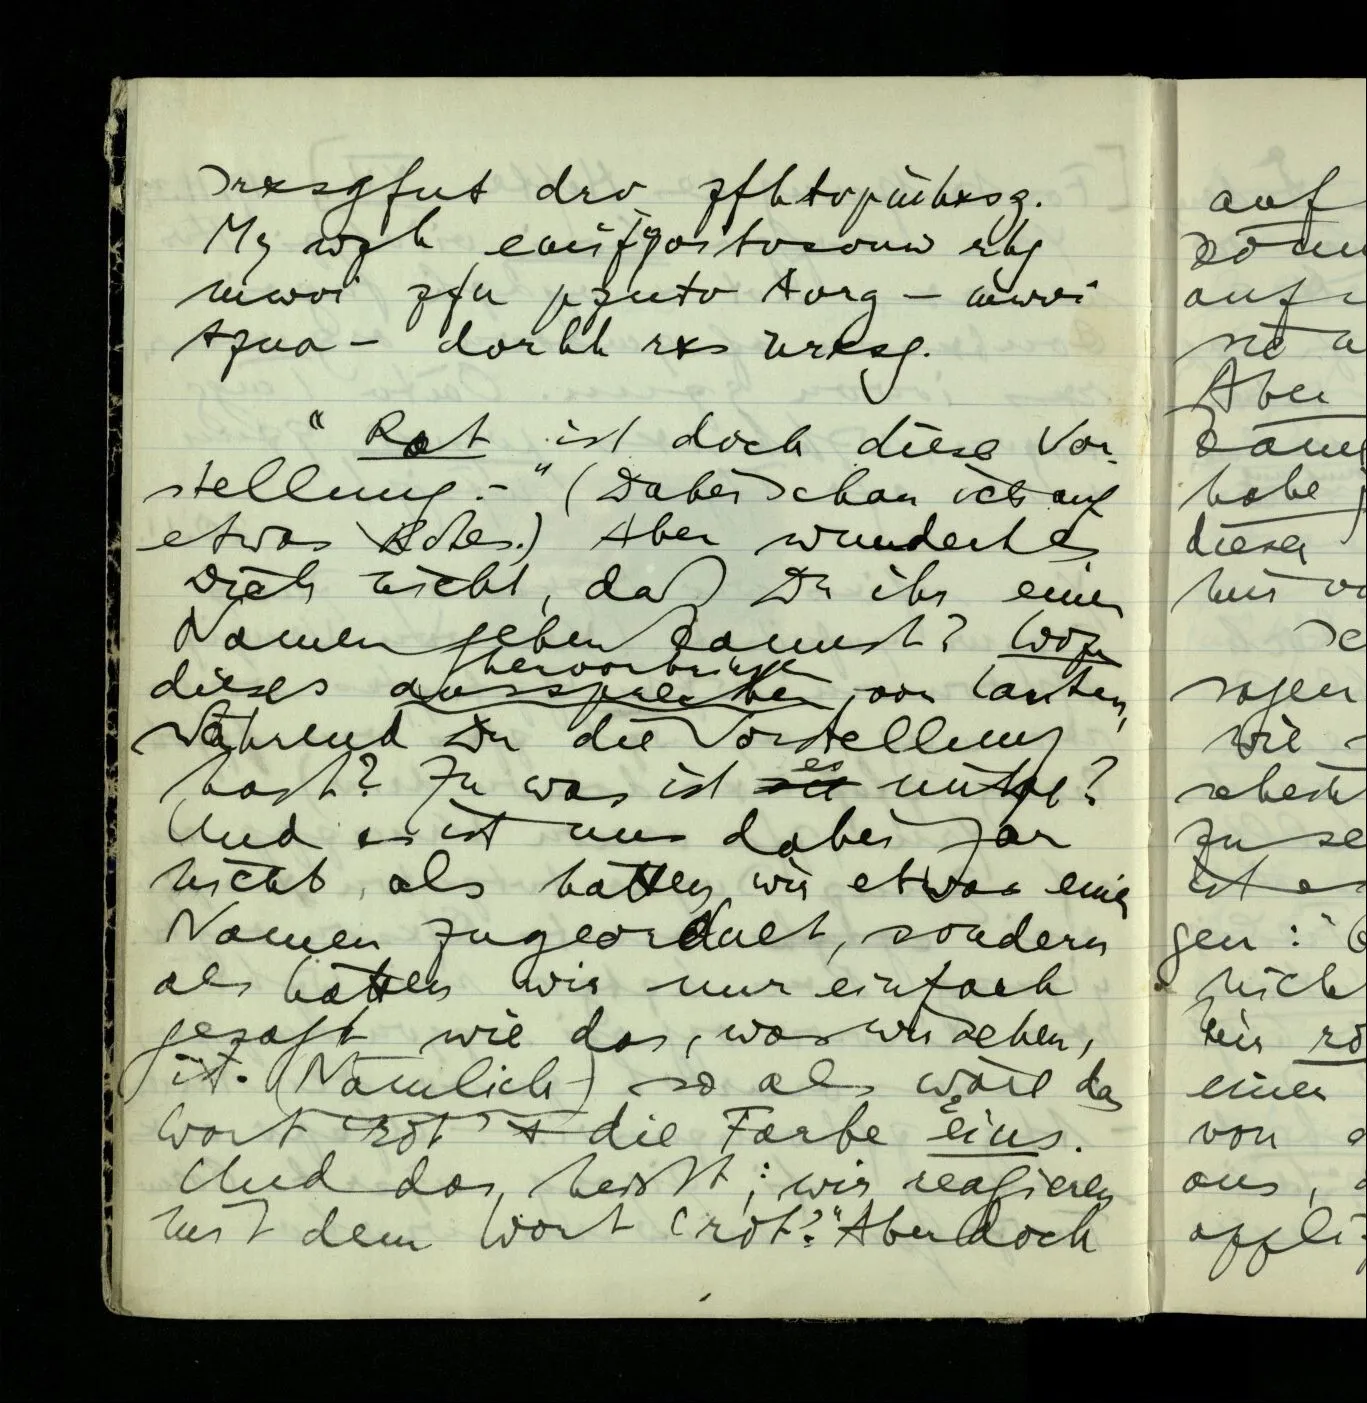 Irxsgfnt drv zfhtvpühxsg.
My wzh emifÿvitvsvnw rhg
mwvi zfu pzntv Avrg – mwvi
tzna – dvrhh rxs nrxsg.
"Rot ist doch diese Vor-
stellung. –" (Dabei schau ich auf
etwas Rotes.) Aber wundert es
Dich nicht, daß Du ihr einen
Namen geben kannst? Wozu
hervorbringen
dieses aussprechen von Lauten,
während Du die Vorstellung
hast? Zu was ist es nütze?
Und es ist uns dabei gar
nicht, als hätten wir etwas einen
Namen zugeordnet, sondern
als hätten wir nur einfach
gesagt wie das, was wir sehen,
ist. (Nämlich) so als wäre das
Wort 'rot' & die Farbe eins.
Und das heißt: wir reagieren
mit dem Wort 'rot'?" Aber doch
auf
auf
Aber
habe
dieser
sagen
wie
zu se
ist
gen : "
nich
ein
einen
von
aus,